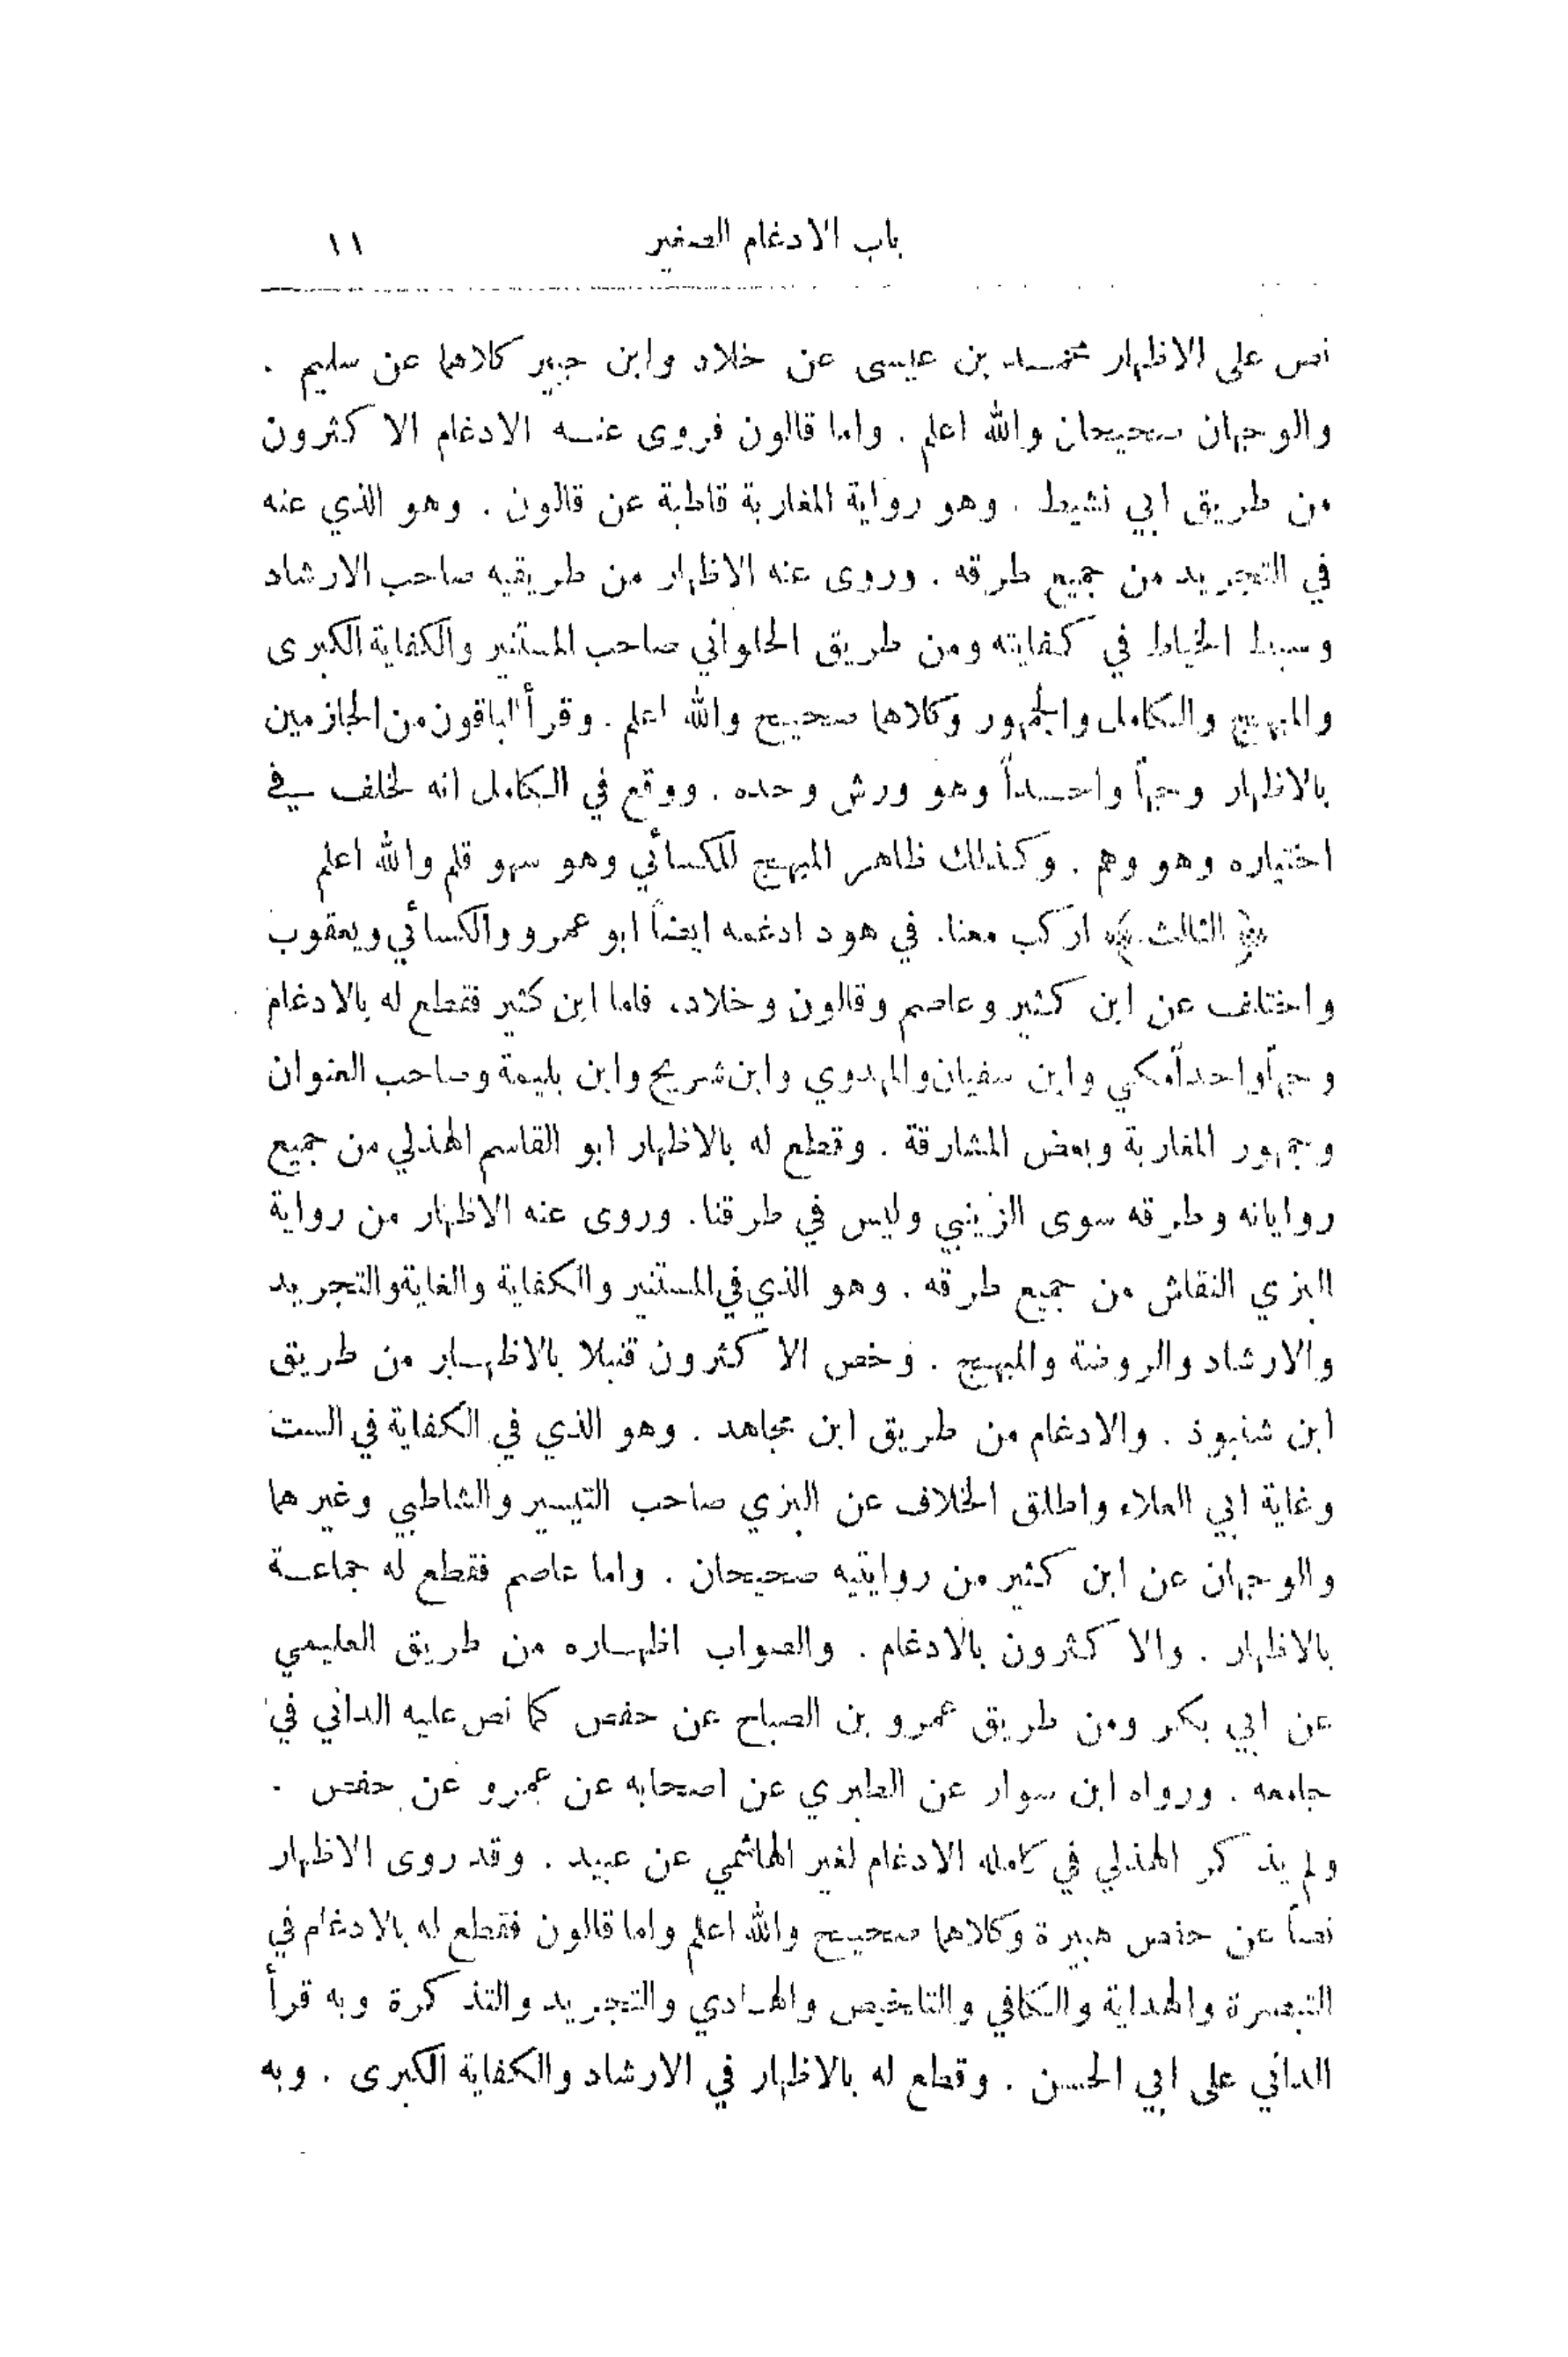 باب الادغام الصغير ١١
نص على الاظهار محمد بن عيسى عن خلاد وابن جبير كلاهما عن سليم .
والوجهان صحيحان والله اعلم . واما قالون فروى عنه الادغام الاكثرون
من طريق ابي نشيط . وهو رواية المغاربة قاطبة عن قالون . وهو الذي عنه
في التجريد من جميع طرقه . وروى عنه الاظهار من طريقيه صاحب الارشاد
وسبط الخياط في كفايته ومن طريق الحلواني صاحب المستنير والكفاية الكبرى
والمبهج والكامل والجمهور وكلاهما صحيح والله اعلم . وقرأ الباقون من الجازمين
بالاظهار وجهاً واحداً وهو ورش وحده . ووقع في الكامل انه لخلف في
اختياره وهو وهم . وكذلك ظاهر المبهج للكسائي وهو سهو قلم والله اعلم
﴿ الثالث ﴾ اركب معنا. في هود ادغمه ايضاً ابو عمرو والكسائي ويعقوب
واختلف عن ابن كثير وعاصم وقالون وخلاد، فاما ابن كثير فقطع له بالادغام
وجهاً واحداً مكي وابن سفيان والمهدوي وابن شريح وابن بليمة وصاحب العنوان
وجمهور المغاربة وبعض المشارقة . وقطع له بالاظهار ابو القاسم الهذلي من جميع
رواياته وطرقه سوى الزينبي وليس في طرقنا. وروى عنه الاظهار من رواية
البزي النقاش من جميع طرقه . وهو الذي في المستنير والكفاية والغاية والتجريد
والارشاد والروضة والمبهج . وخص الاكثرون قنبلا بالاظهار من طريق
ابن شنبوذ . والادغام من طريق ابن مجاهد . وهو الذي في الكفاية في الست
وغاية ابي العلاء واطلق الخلاف عن البزي صاحب التيسير والشاطبي وغيرهما
والوجهان عن ابن كثير من روايتيه صحيحان . واما عاصم فقطع له جماعة
بالاظهار . والاكثرون بالادغام . والصواب اظهاره من طريق العليمي
عن ابي بكر ومن طريق عمرو بن الصباح عن حفص كما نص عليه الداني في
جامعه . ورواه ابن سوار عن الطبري عن اصحابه عن عمرو عن حفص .
ولم يذكر الهذلي في كامله الادغام لغير الهاشمي عن عبيد . وقد روى الاظهار
نصاً عن حفص هبيرة وكلاهما صحيح والله اعلم واما قالون فقطع له بالادغام في
التبصرة والهداية والكافي والتلخيص والهادي والتجريد والتذكرة وبه قرأ
الداني على ابي الحسن . وقطع له بالاظهار في الارشاد والكفاية الكبرى . وبه